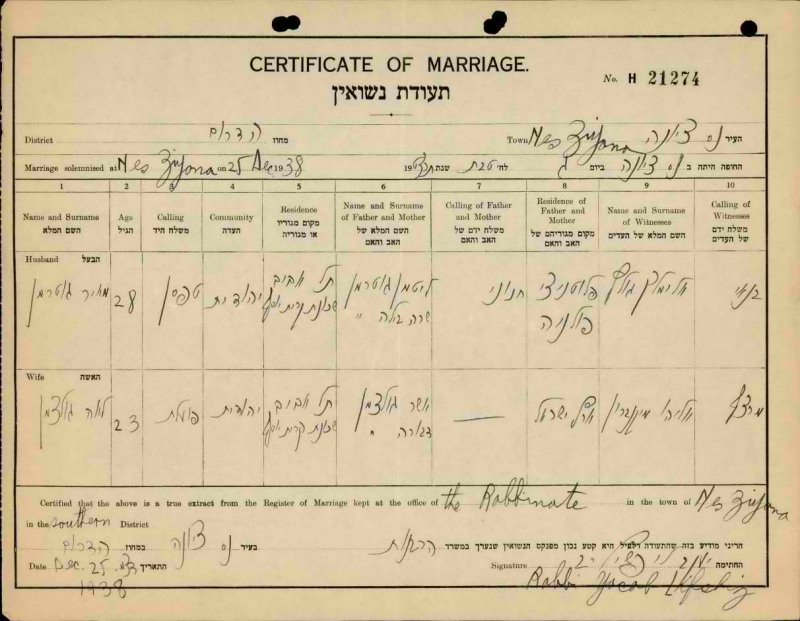 CERTIFICATE OF MARRIAGE.
תעודת נשואין
No. H 21274
District הדרום מחוז
Town Nes Zijona נס ציונה העיר
Marriage solemnised at Nes Zijona on 25 Dec 1938
החופה היתה ב נס ציונה ביום ג לח׳ טבת שנת
1 2 3 4 5 6 7 8 9 10
Name and Surname
השם המלא
Age
הגיל
Calling
משלח היד
Community
העדה
Residence
מקום מגוריו
או מגוריה
Name and Surname
of Father and Mother
השם המלא של
האב והאם
Calling of Father
and Mother
משלח ידם של
האב והאם
Residence of
Father and
Mother
מקום מגוריהם של
האב והאם
Name and Surname
of Witnesses
השם המלא של העדים
Calling of
Witnesses
משלח ידם
של העדים
Husband הבעל
מאיר גוטרמן
28
טפסן
יהודית
תל אביב
שכונת קרית יוסף
ליטמן גוטרמן
שרה בילה "
חנוני
פולניה
אלימלך
בנאי
Wife האשה
לאה גולצמן
23
פועלת
יהודית
תל אביב
שכונת קרית יוסף
אשר גולצמן
דבורה "
—
ארץ ישראל
אליהו
Certified that the above is a true extract from the Register of Marriage kept at the office of the Rabbinate in the town of Nes Zijona
in the southern District
הריני מודיע בזה שהתעודה דלעיל היא קטע נכון מפנקס הנשואין שנערך במשרד הרבנות
בעיר נס ציונה במחוז הדרום
Date Dec. 25. התאריך
1938
Signature החתימה
Rabbi Jacob Lifshiz